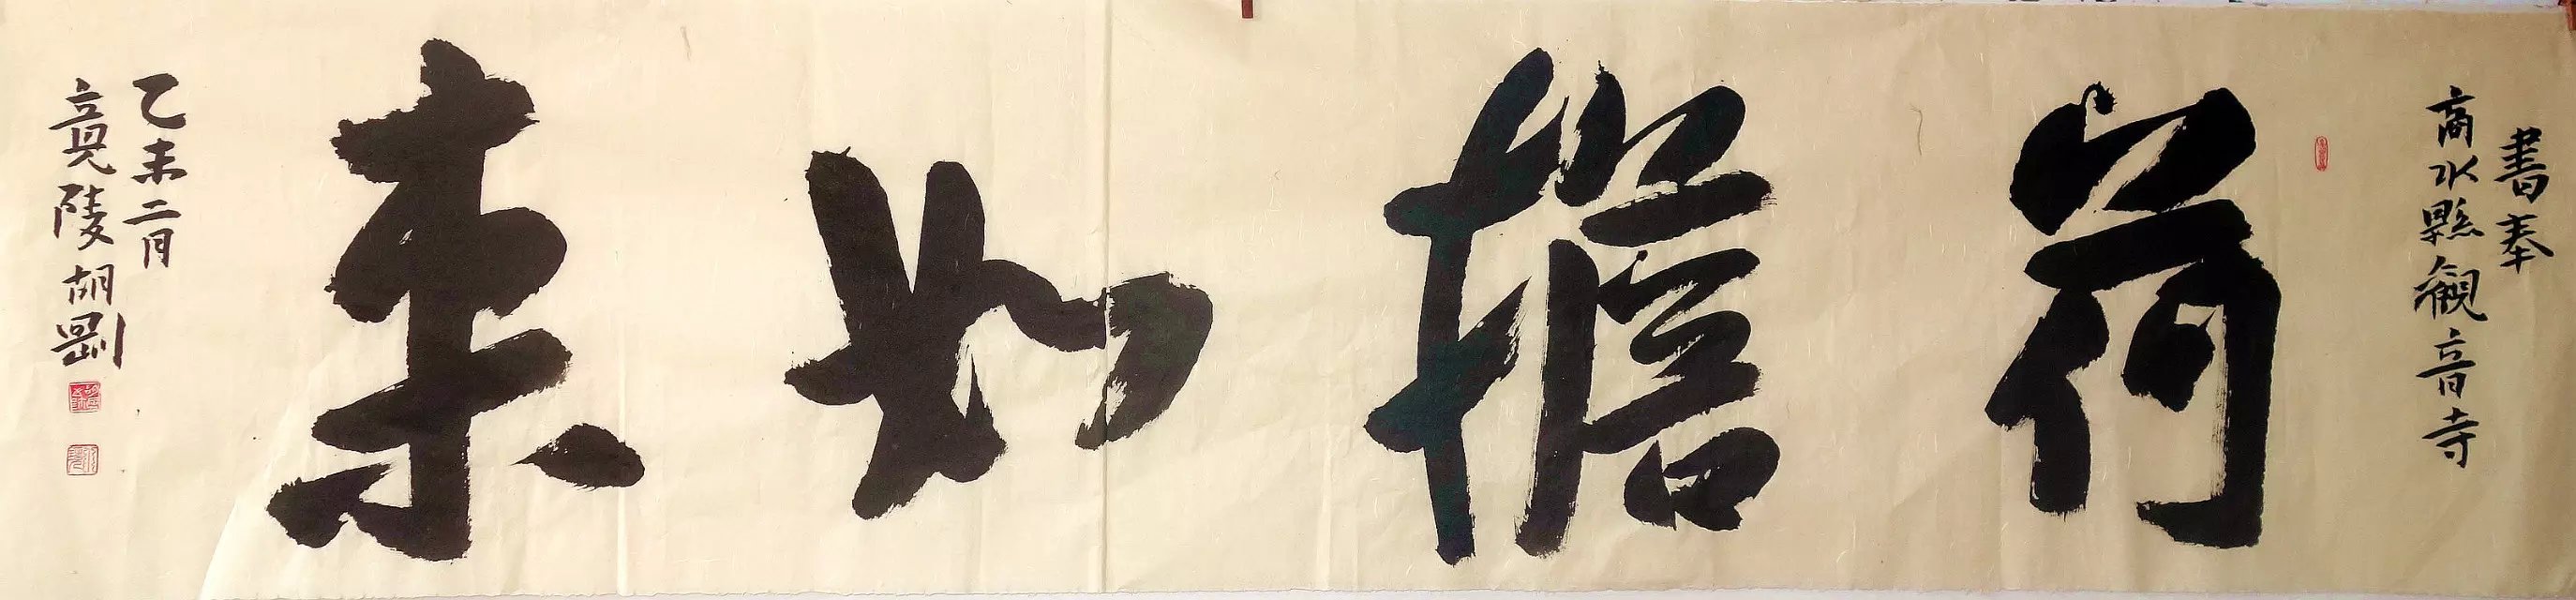 書奉
商水縣觀音寺
荷擔如来
乙未二月
竟陵胡剛